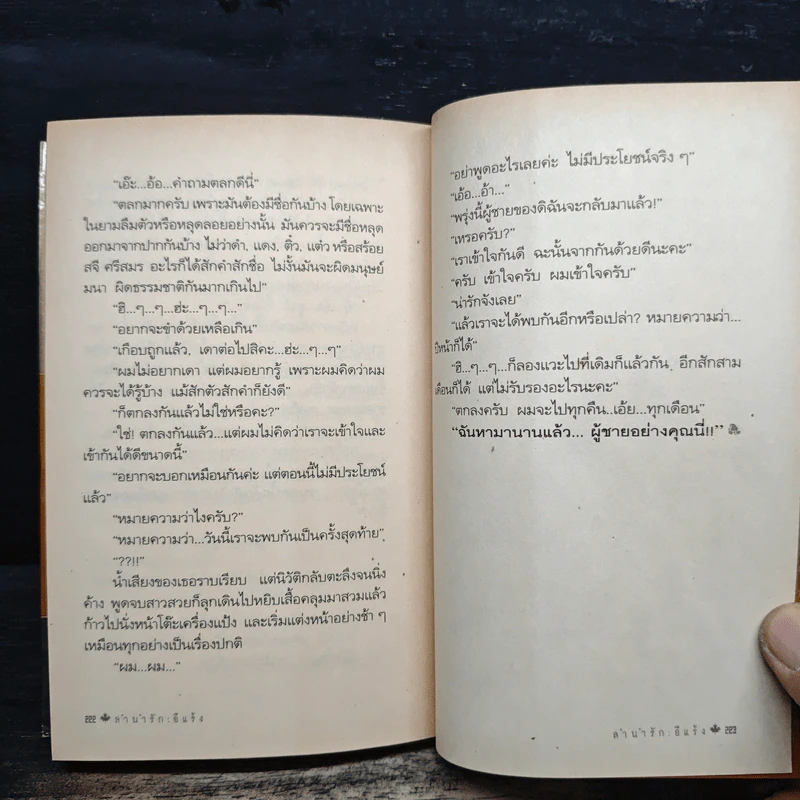 "เอ๊ะ...อ้อ...คำถามตลกดีนี่"
"ตลกมากครับ เพราะมันต้องมีชื่อกันบ้าง โดยเฉพาะ
ในยามลืมตัวหรือหลุดลอยอย่างนั้น มันควรจะมีชื่อหลุด
ออกมาจากปากกันบ้าง ไม่ว่าดำ, แดง, ติ๋ว, แต๋ว หรือสร้อย
สจี ศรีสมร อะไรก็ได้สักคำสักชื่อ ไม่งั้นมันจะผิดมนุษย์
มนา ผิดธรรมชาติกันมากเกินไป"
"ฮิ...ๆ...ๆ...ฮ่ะ...ๆ...ๆ..."
"อยากจะขำด้วยเหลือเกิน"
"เกือบถูกแล้ว, เดาต่อไปสิคะ...ฮ่ะ...ๆ...ๆ"
"ผมไม่อยากเดา แต่ผมอยากรู้ เพราะผมคิดว่าผม
ควรจะได้รู้บ้าง แม้สักตัวสักคำก็ยังดี"
"ก็ตกลงกันแล้วไม่ใช่หรือคะ?"
"ใช่! ตกลงกันแล้ว...แต่ผมไม่คิดว่าเราจะเข้าใจและ
เข้ากันได้ดีขนาดนี้"
"อยากจะบอกเหมือนกันค่ะ แต่ตอนนี้ไม่มีประโยชน์
แล้ว"
"หมายความว่าไงครับ?"
"หมายความว่า...วันนี้เราจะพบกันเป็นครั้งสุดท้าย"
"??!!"
น้ำเสียงของเธอราบเรียบ แต่นิวัติกลับตะลึงจนนิ่ง
ค้าง พูดจบสาวสวยก็ลุกเดินไปหยิบเสื้อคลุมมาสวมแล้ว
ก้าวไปนั่งหน้าโต๊ะเครื่องแป้ง และเริ่มแต่งหน้าอย่างช้า ๆ
เหมือนทุกอย่างเป็นเรื่องปกติ
"ผม...ผม..."
222 ลำนำรัก : อีแร้ง
"อย่าพูดอะไรเลยค่ะ ไม่มีประโยชน์จริง ๆ"
"เอ้อ...อ้า..."
"พรุ่งนี้ผู้ชายของดิฉันจะกลับมาแล้ว!"
"เหรอครับ?"
"เราเข้าใจกันดี ฉะนั้นจากกันด้วยดีนะคะ"
"ครับ เข้าใจครับ ผมเข้าใจครับ"
"น่ารักจังเลย"
"แล้วเราจะได้พบกันอีกหรือเปล่า? หมายความว่า...
ปีหน้าก็ได้"
"ฮิ...ๆ...ๆ...ก็ลองแวะไปที่เดิมก็แล้วกัน อีกสักสาม
เดือนก็ได้ แต่ไม่รับรองอะไรนะคะ"
"ตกลงครับ ผมจะไปทุกคืน..เอ้ย...ทุกเดือน"
"ฉันหามานานแล้ว... ผู้ชายอย่างคุณนี่!!"
ลำนำรัก : อีแร้ง 223